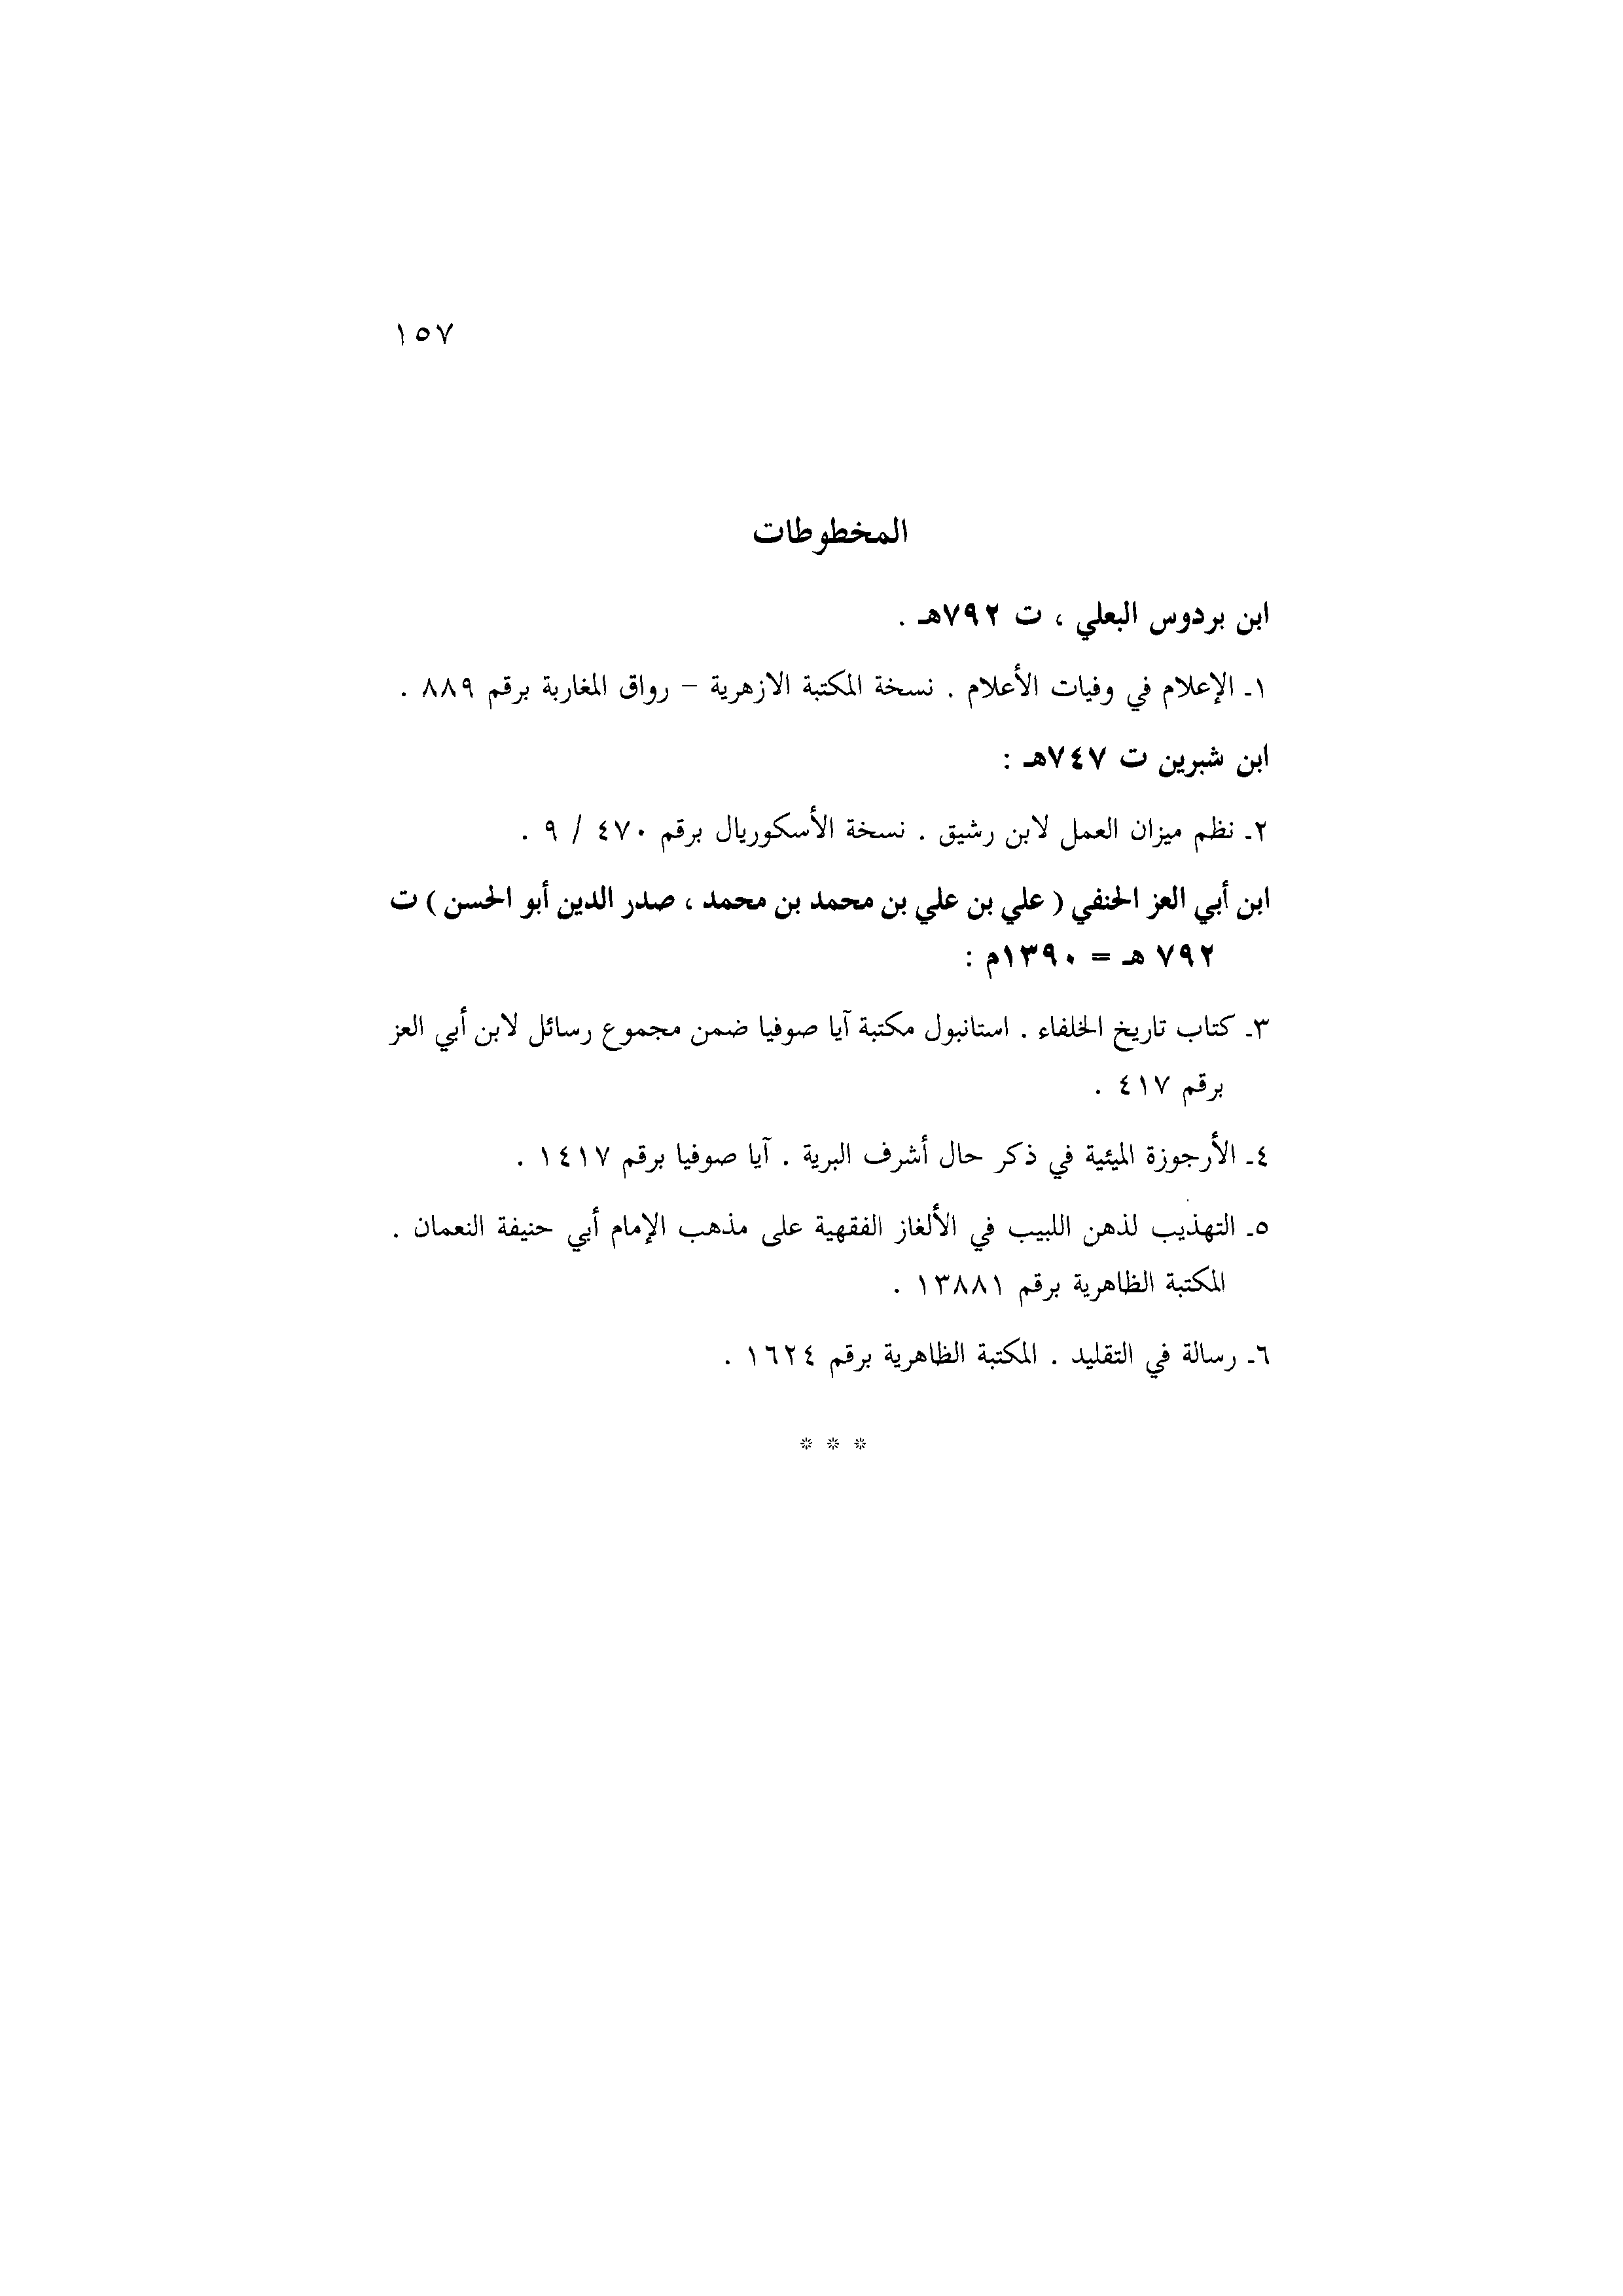 ١٥٧
المخطوطات
ابن بردوس البعلي ، ت ٧٩٢هـ .
١ـ الإعلام في وفيات الأعلام . نسخة المكتبة الازهرية – رواق المغاربة برقم ٨٨٩ .
ابن شبرين ت ٧٤٧هـ :
٢ـ نظم ميزان العمل لابن رشيق . نسخة الأسكوريال برقم ٤٧٠ / ٩ .
ابن أبي العز الحنفي ( علي بن علي بن محمد بن محمد ، صدر الدين أبو الحسن ) ت
٧٩٢ هـ = ١٣٩٠م :
٣ـ كتاب تاريخ الخلفاء . استانبول مكتبة آيا صوفيا ضمن مجموع رسائل لابن أبي العز
برقم ٤١٧ .
٤ـ الأرجوزة الميئية في ذكر حال أشرف البرية . آيا صوفيا برقم ١٤١٧ .
٥ـ التهذيب لذهن اللبيب في الألغاز الفقهية على مذهب الإمام أبي حنيفة النعمان .
المكتبة الظاهرية برقم ١٣٨٨١ .
٦ـ رسالة في التقليد . المكتبة الظاهرية برقم ١٦٢٤ .
* * *